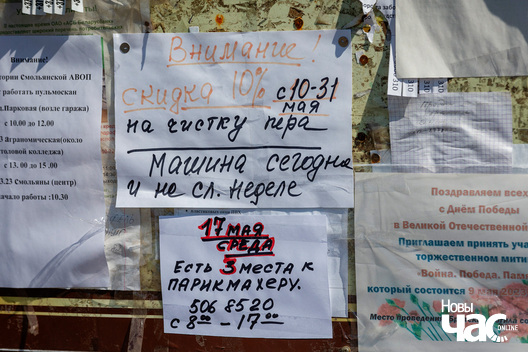 Внимание!
тории Смольянской АВОП
т работать пульмоскан
Парковая (возле гаража)
с 10.00 до 12.00
3 Агрономическая(около
толовой колледжа)
с 13. 00 до 15 .00
3.23 Смольяны (центр)
ачало работы :10.30
Внимание!
скидка 10% с 10-31
мая
на чистку пера
Машина сегодня
и на сл. неделе
17 мая
СРЕДА
Есть 3 места к
парикмахеру.
506 85 20
с 8⁰⁰ – 17⁰⁰
Поздравляем всех
с Днём Победы
в Великой Отечественной
Приглашаем принять уча
торжественном мити
"Война. Победа. Пам
который состоится 9 мая 20
Место прове
Новы
Час
ONLINE